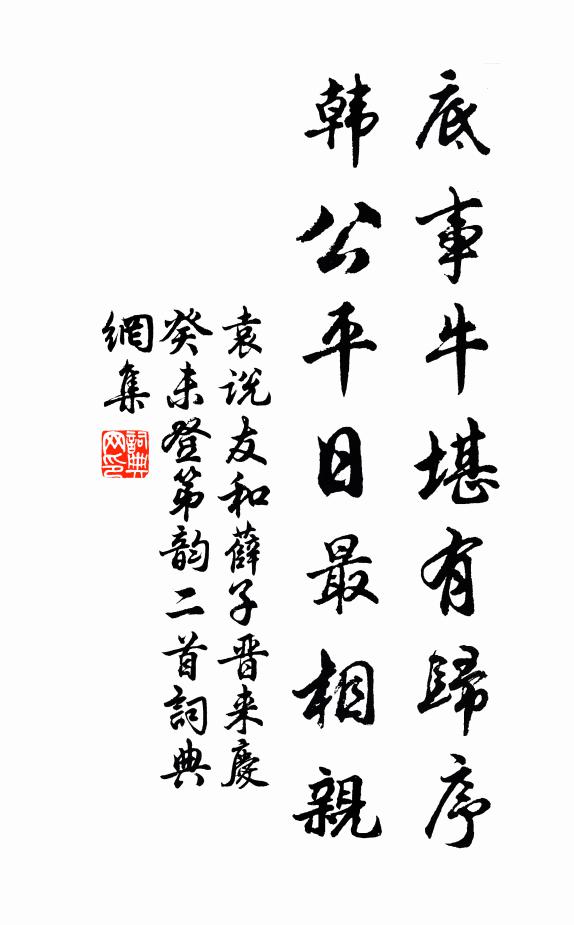 底事牛堪有歸序
韓公平日最相親
袁说友和薛子晋来慶
癸未登第韵二首詞典
網集
詞典网印